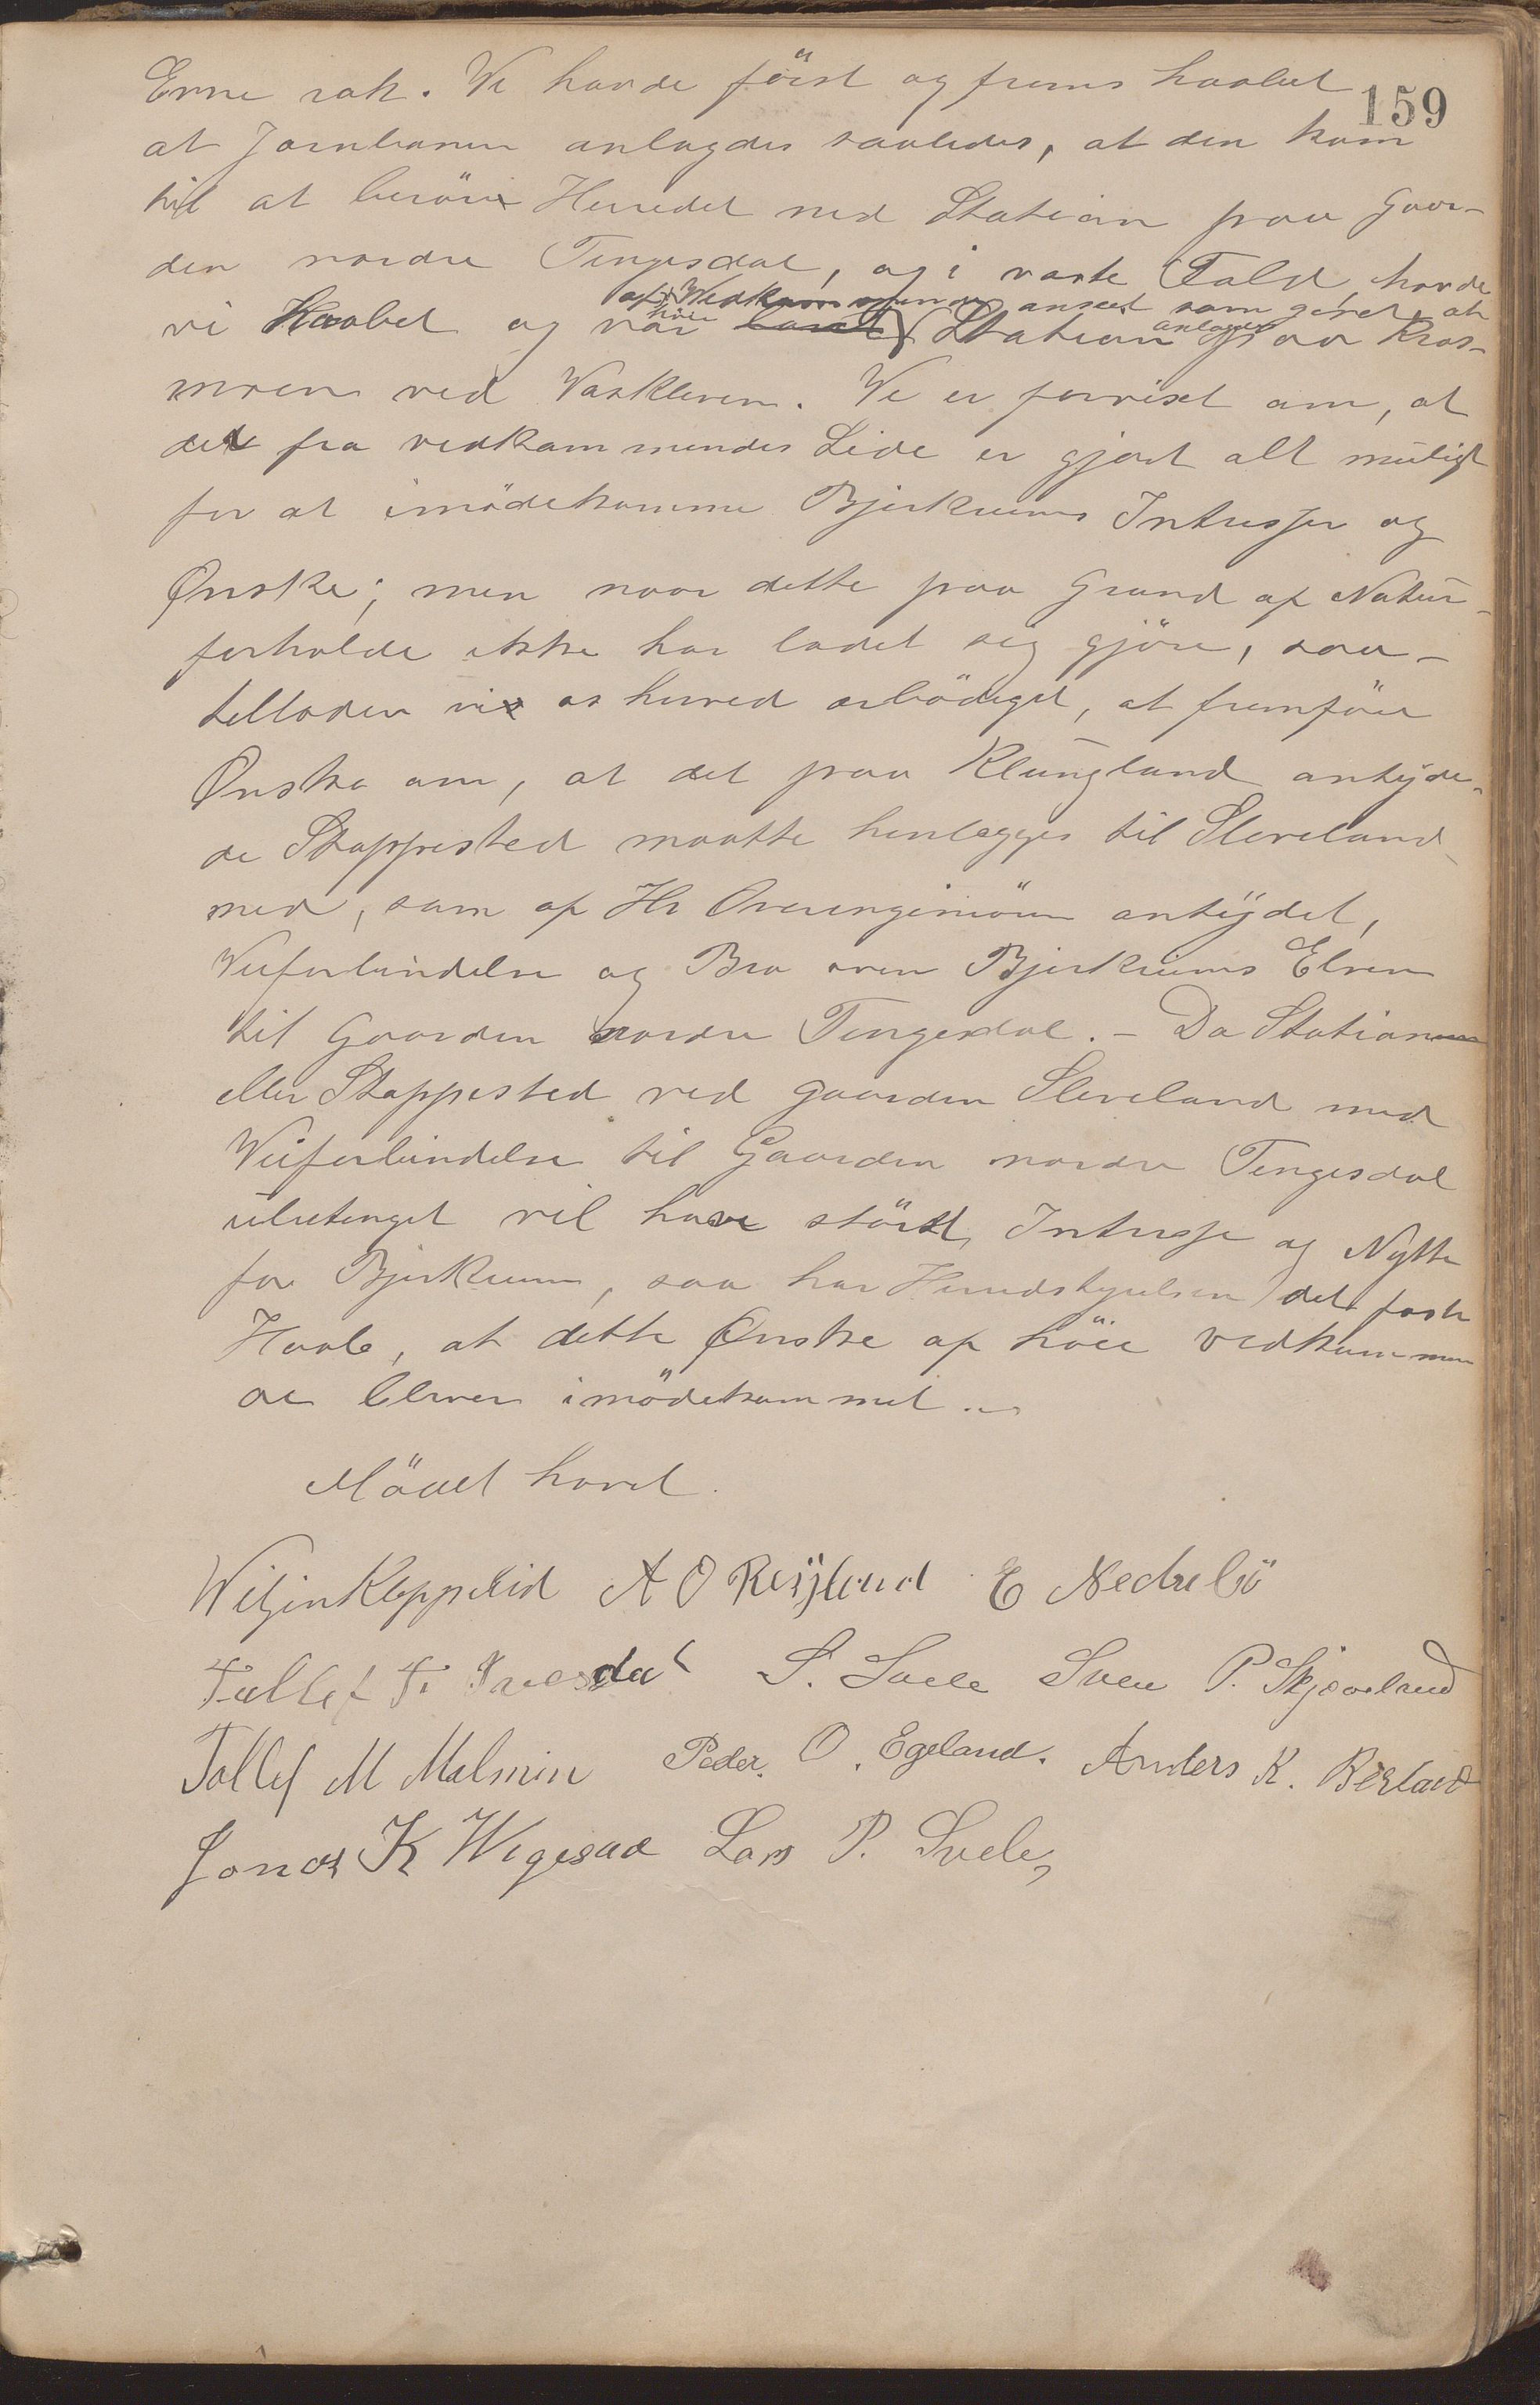 159
Evne rak. Vi havde först og frems haabet
at Jernbanen anlagdes saaledes, at den kom
til at beröre Herredet med Station paa Gaar-
den nordre Tengesdal, og i værste Fald, havde
af höie Vedkommende anseet som givet, at
vi Haabet og var Station anlagdes paa Kros-
moen ved Vaskleven. Vi er forvisset om, at
det fra vedkommendes Side er gjort alt muligt
for at imödekomme Bjerkreims Intresser og
Ønske; men naar dette paa Grund af Natur-
forholde ikke har ladet sig gjöre, saa
tillader vi os herved ærbödigst, at fremföre
Ønske om, at det paa Klungland antyde-
de Stoppested maatte henlægges til Sleveland
med, som af Hr Overingeniören antydet,
Veiforbindelse og Bro over Bjerkreims Elven
til Gaarden nordre Tengesdal. - Da Station
eller Stoppested ved Gaarden Sleveland med
Veiforbindelse til Gaarden nordre Tengesdal
ubetinget vil have störst Intresse og Nytte
for Bjerkreim, saa har Herredstyrelsen det faste
Haab, at dette Ønske af höie vedkommen
de bliver imödekommet.
Mödet hævet.
Witjin Køppelid A O Reÿland E Nedrebö
Tollef T. Svele S. Svele Sven P. Skjæveland
Tollef M Malmin Peder O. Egeland. Anders K. Birkland
Jonas K Wigesaa Lars P. Svele,